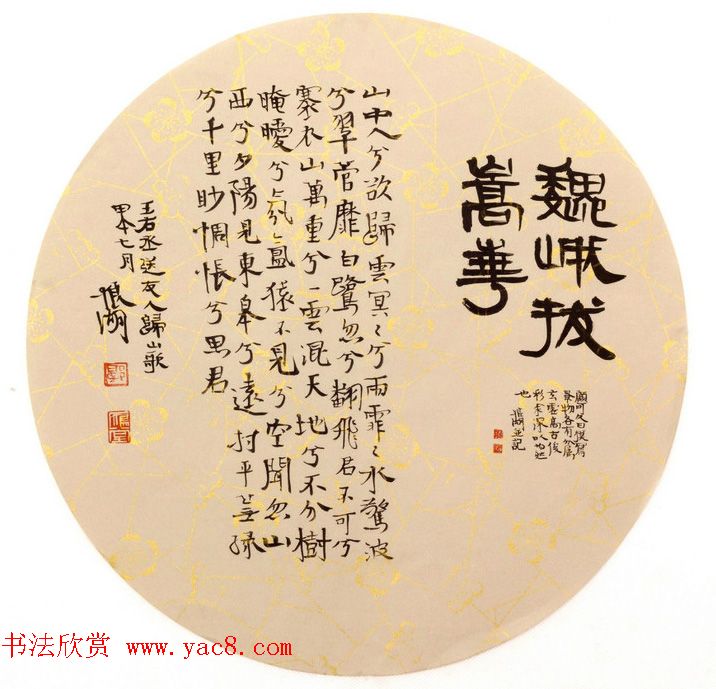 魏峨拔
嵩華
玄雲高古後
也
並記
山中人兮欲歸雲冥〻兮雨霏〻水驚波
兮翠菅靡白鷺忽兮翻飛君不可兮
褰衣山萬重兮一雲混天地兮不分樹
晻曖兮氛氳猿不見兮空聞忽山
西兮夕陽見東皋兮遠村平蕪綠
兮千里眇惆悵兮思君
王右丞送友人歸山歌
甲午七月
书法欣赏 www.yac8.com